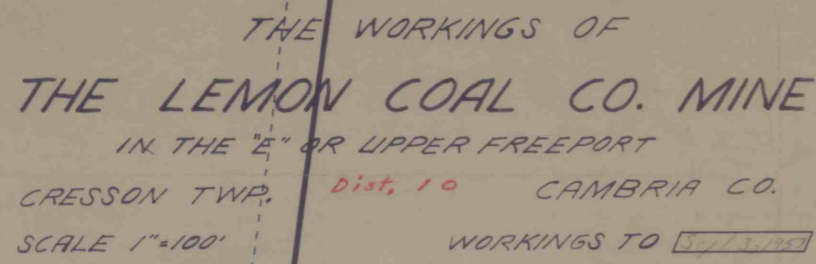 THE WORKINGS OF
THE LEMON COAL CO. MINE
IN THE "E" OR UPPER FREEPORT
CRESSON TWP. Dist, 10 CAMBRIA CO.
SCALE 1"=100' WORKINGS TO Sept 3, 1957